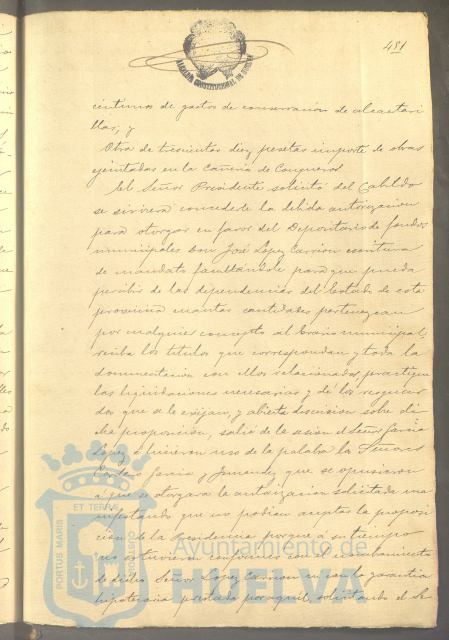 481
ALCALDIA CONSTITUCIONAL DE HUELVA
céntimos de gastos de conservacion de alcantari-
llas; y
Otra de trescientas diez pesetas importe de obras
ejecutadas en la Cañeria de Conqueros
El Señor Presidente solicitó del Cabildo
se sirviera concederle la debida autorizacion
para otorgar en favor del Depositario de fondos
municipales Don José Lopez Carrion escritura
de mandato facultandole para que pueda
percibir de las dependencias del Estado de esta
provincia cuantas cantidades pertenezcan
por cualquier concepto al Erario municipal,
reciba los titulos que correspondan y toda la
documentacion con ellos relacionados, practique
las liquidaciones necesarias y dé los resguar-
dos que se le exijan, y abierta discusion sobre di-
cha proposicion, salió de la sesion el Señor Garcia
Lopez é hicieron uso de la palabra los Señores
Garcia y que se opusieron
á que se otorgara la autorizacion solicitada ma-
nifestando que no podian aceptar la proposi-
cion de la Presidencia porque á su tiempo
no estuvieron conformes con el nombramiento
de dicho Señor Lopez Carrion en la garantia
hipotecaria prestada por aquel, solicitando el Se-
ET TERRAE
PORTUS MARIS
CUSTODIA
Ayuntamiento de
HUELVA